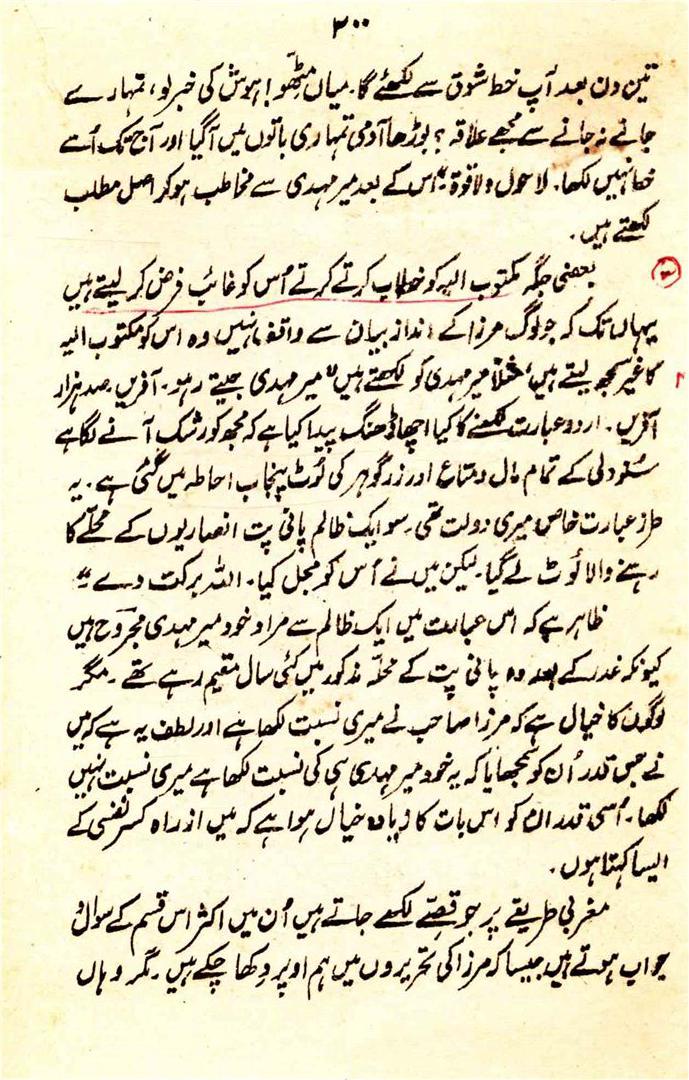 ۳۰۰
تین دن بعد آپ خط شوق سے لکھئے گا۔ میاں مٹھّو! ہوش کی خبر لو، تمہارے
جانے نہ جانے سے مجھے علاقہ؟ بوڑھا آدمی تمہاری باتوں میں آگیا اور آج تک اُسے
خط نہیں لکھا۔ لاحول ولا قوۃ" اس کے بعد میر مہدی سے مخاطب ہو کر اصل مطلب
لکھتے ہیں۔
بعضی جگہ مکتوب الیہ کو خطاب کرتے کرتے اُس کو غائب فرض کر لیتے ہیں
یہاں تک کہ جو لوگ مرزا کے انداز بیان سے واقف نہیں وہ اس کو مکتوب الیہ
کا غیر سمجھ لیتے ہیں، مثلاً میر مہدی کو لکھتے ہیں "میر مہدی جیتے رہو۔ آفریں صد ہزار
آفریں۔ اردو عبارت لکھنے کا کیا اچھا ڈھنگ پیدا کیا ہے کہ مجھ کو رشک آنے لگا ہے
سنو دلی کے تمام مال و متاع اور زر و گوہر کی لوٹ پنجاب احاطہ میں گئی ہے۔ یہ
طرز عبارت خاص میری دولت تھی۔ سو ایک ظالم پانی پت انصاریوں کے محلّے کا
رہنے والا لُوٹ لے گیا۔ لیکن میں نے اُس کو بحل کیا۔ اللہ برکت دے"
ظاہر ہے کہ اس عبارت میں ایک ظالم سے مراد خود میر مہدی مجروح ہیں
کیونکہ غدر کے بعد وہ پانی پت کے محلّہ مذکور میں کئی سال مقیم رہے تھے۔ مگر
لوگوں کا خیال ہے کہ مرزا صاحب نے میری نسبت لکھا ہے اور لطف یہ ہے کہ میں
نے جس قدر اُن کو سمجھایا کہ یہ خود میر مہدی ہی کی نسبت لکھا ہے میری نسبت نہیں
لکھا۔ اُسی قدر ان کو اس بات کا زیادہ خیال ہوا ہے کہ میں از راہ کسر نفسی کے
ایسا کہتا ہوں۔
مغربی طریقے پر جو قصّے لکھے جاتے ہیں اُن میں اکثر اس قسم کے سوال و
جواب ہوتے ہیں جیسا کہ مرزا کی تحریروں میں ہم اوپر دکھا چکے ہیں۔ مگر وہاں